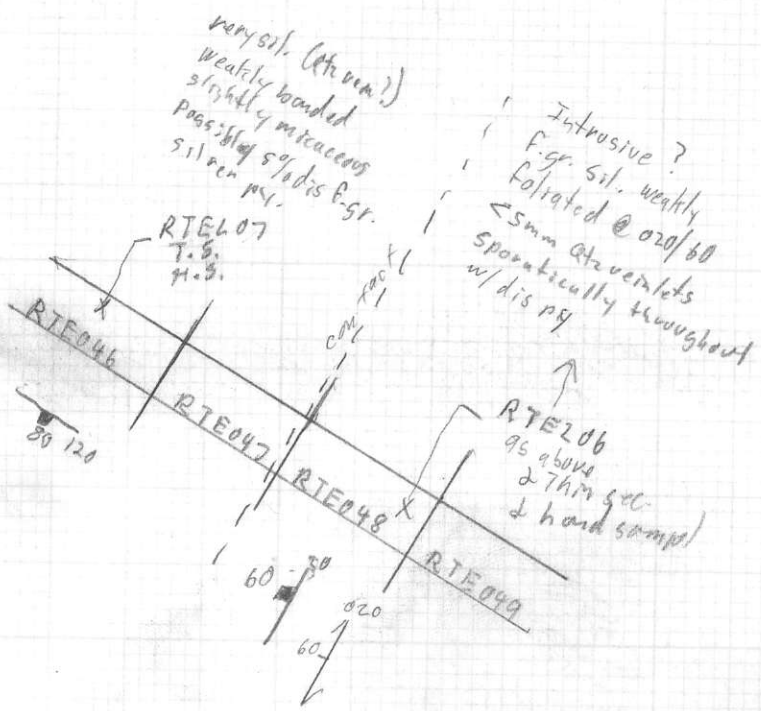 very sil. (Qtz vein?)
weakly banded
slightly micaceous
possibly 5% dis f.gr.
silver py.
Intrusive ?
F.gr. sil. weakly
foliated @ 020/60
<5mm Qtz veinlets
sporatically throughout
w/ dis py
RTE207
T.S.
H.S.
contact
RTE046
RTE047
RTE048
RTE049
80 120
RTE206
as above
& Thin sec.
& hand sampel
60
020
60